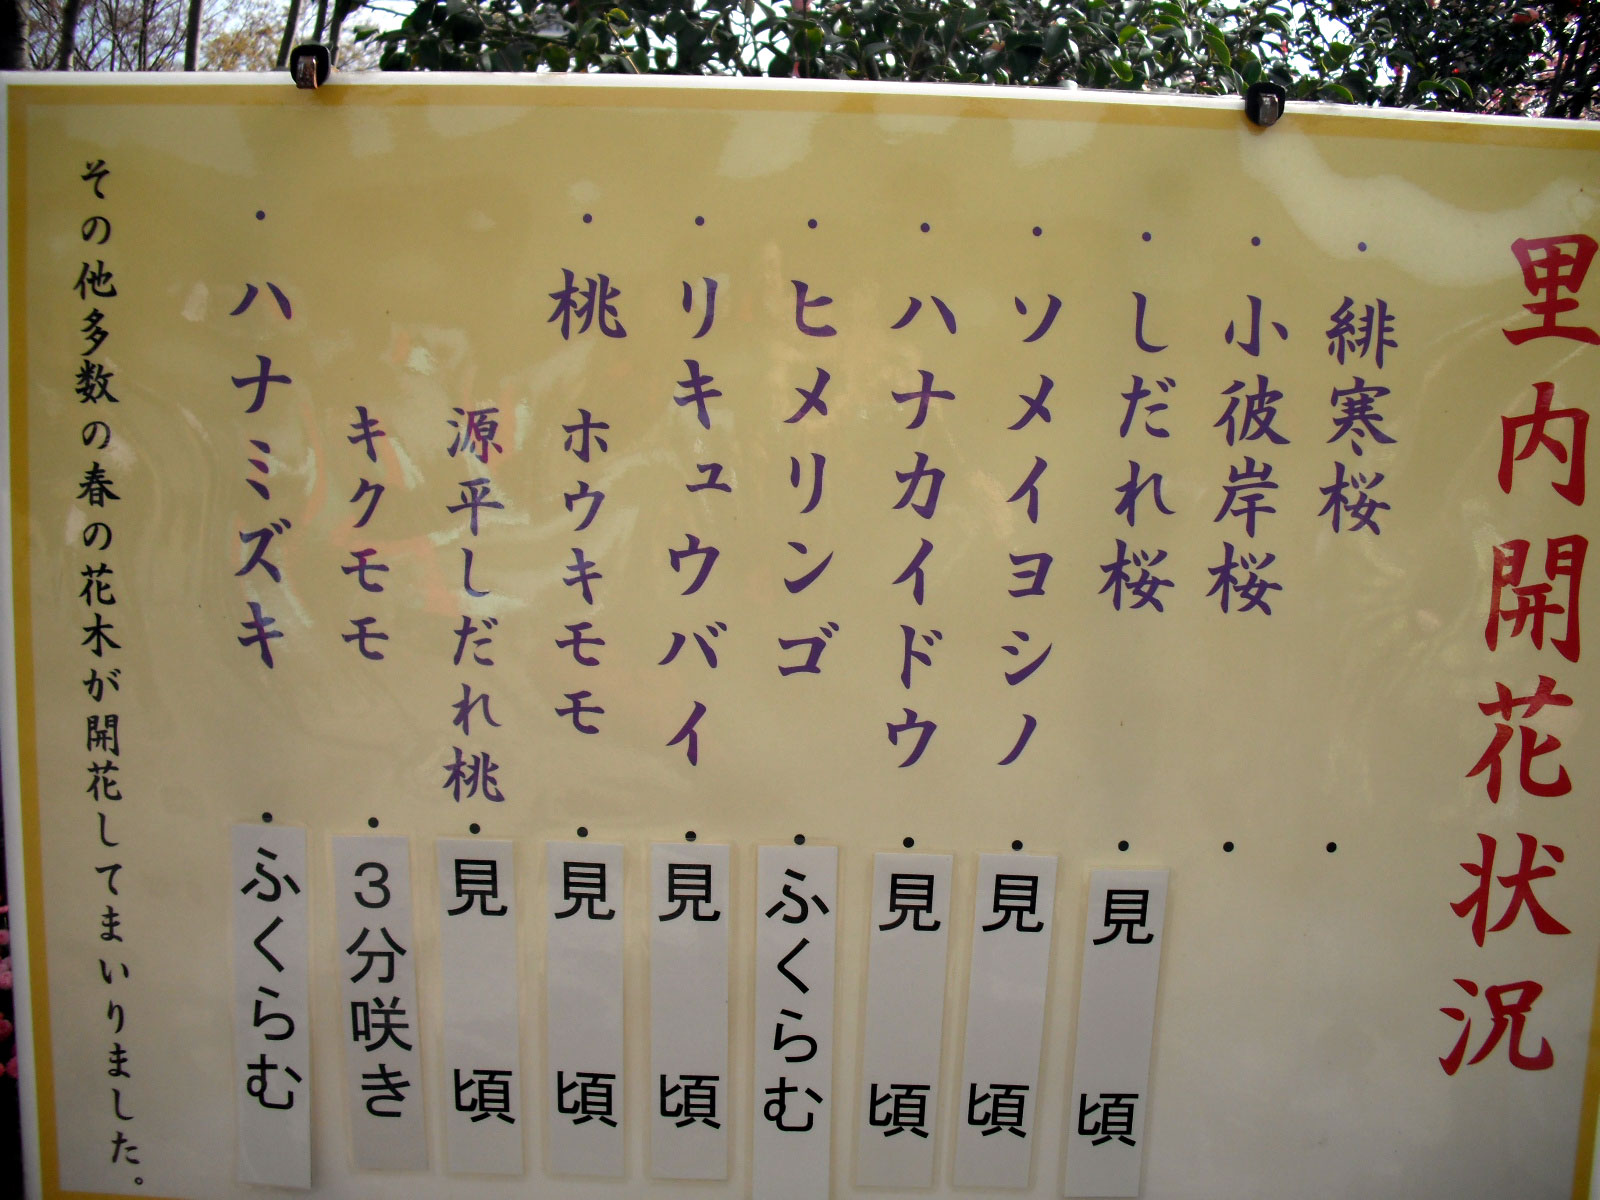 里内開花状況
・緋寒桜・
・小彼岸桜・
・しだれ桜・見頃
・ソメイヨシノ・見頃
・ハナカイドウ・見頃
・ヒメリンゴ・ふくらむ
・リキュウバイ・見頃
・桃 ホウキモモ・見頃
源平しだれ桃・見頃
キクモモ・3分咲き
・ハナミズキ・ふくらむ
その他多数の春の花木が開花してまいりました。